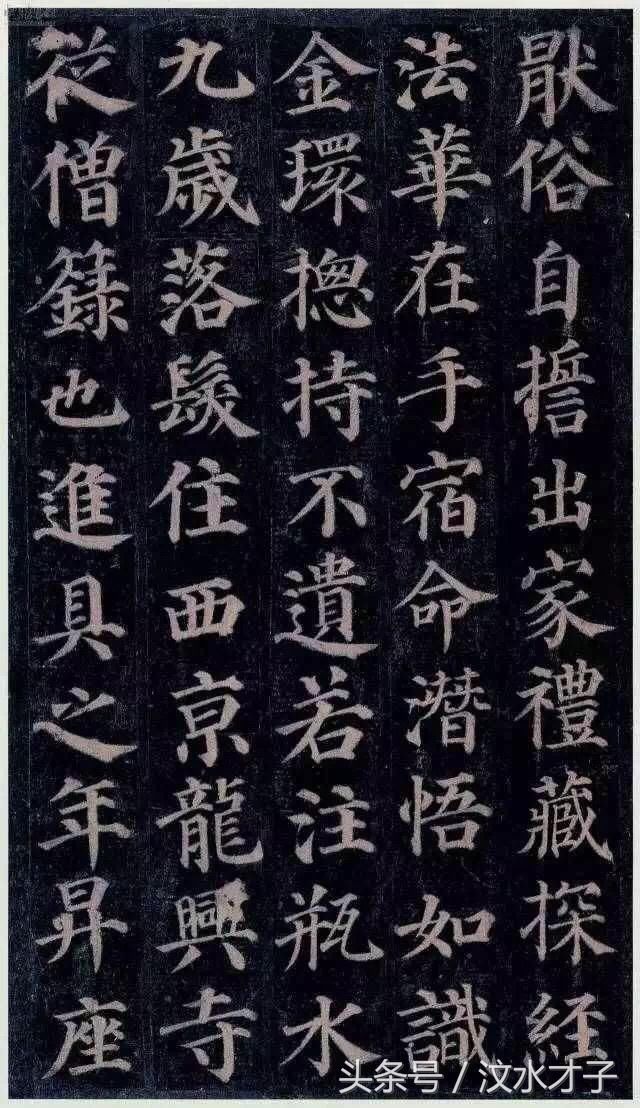 猒俗自誓出家禮藏探經
法華在手宿命潛悟如識
金環揔持不遺若注瓶水
九歲落髮住西京龍興寺
從僧籙也進具之年昇座
头条号 / 汶水才子